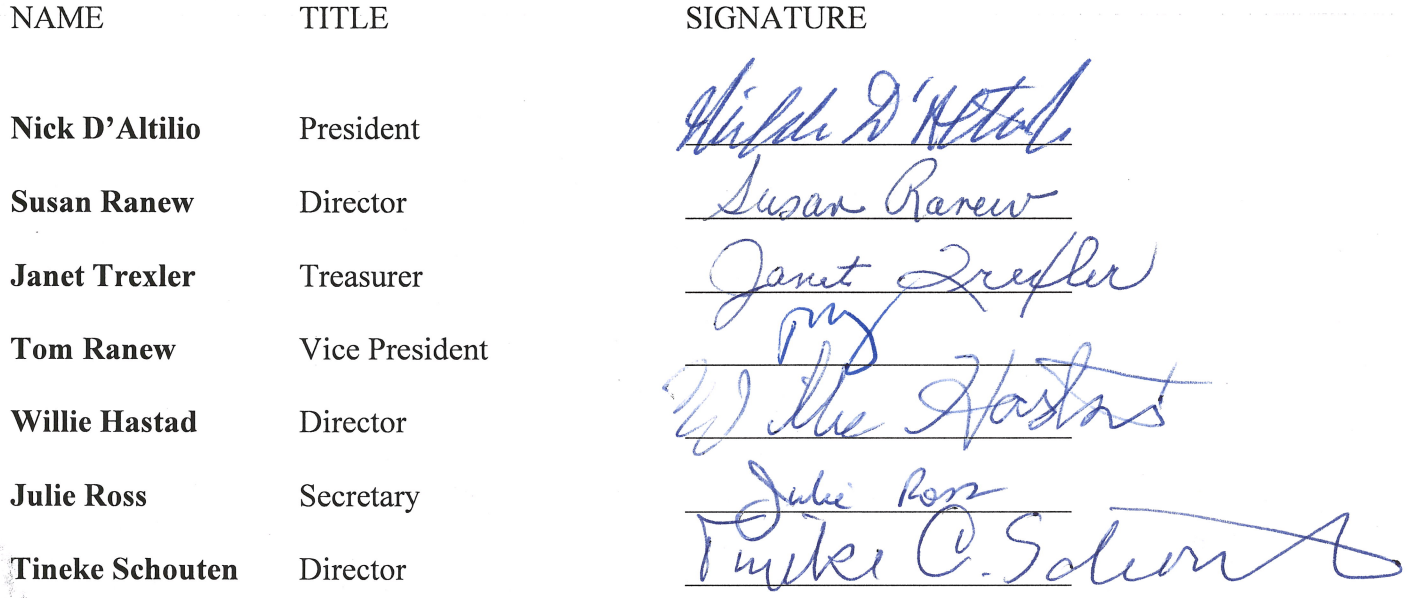 NAME TITLE SIGNATURE
Nick D'Altilio President D'
Susan Ranew Director Susan Ranew
Janet Trexler Treasurer Janet Trexler
Tom Ranew Vice President
Willie Hastad Director Willie
Julie Ross Secretary Julie Ross
Tineke Schouten Director Tineke C. Schouten